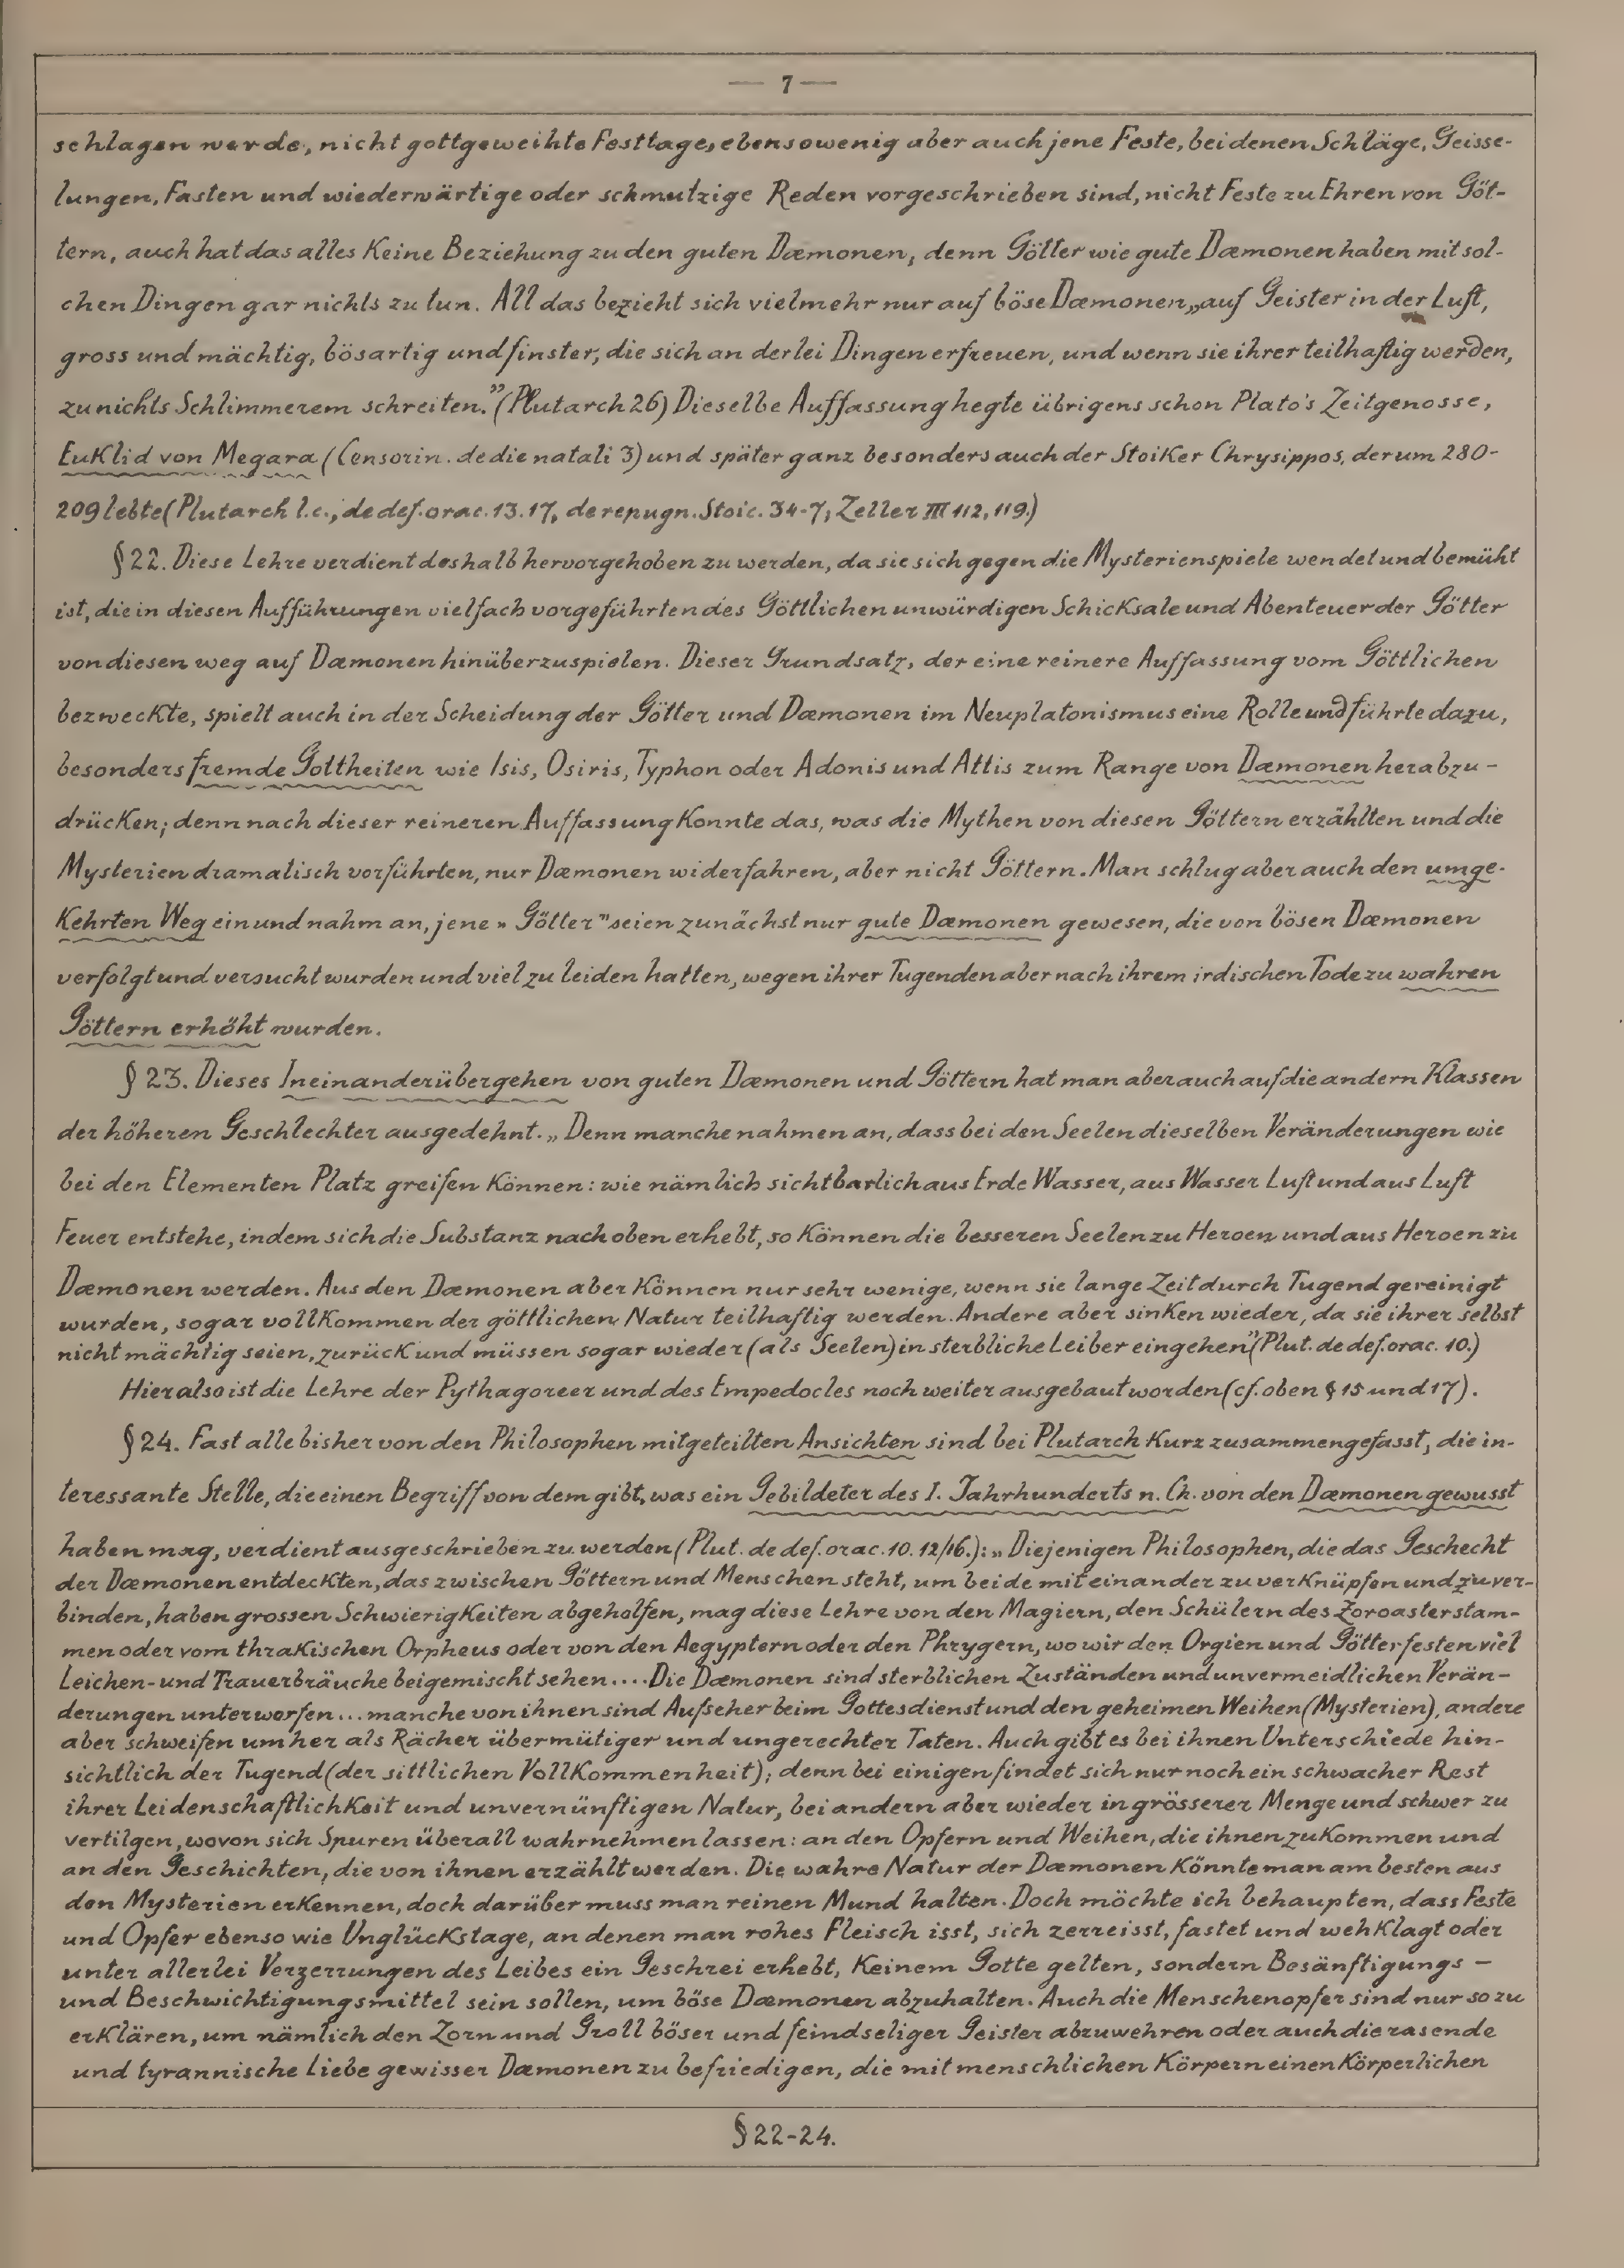 — 7 —
schlagen werde, nicht gottgeweihte Festtage, ebensowenig aber auch jene Feste, bei denen Schläge, Geisse-
lungen, Fasten und wiederwärtige oder schmutzige Reden vorgeschrieben sind, nicht Feste zu Ehren von Göt-
tern, auch hat das alles keine Beziehung zu den guten Dæmonen, denn Götter wie gute Dæmonen haben mit sol-
chen Dingen gar nichts zu tun. All das bezieht sich vielmehr nur auf böse Dæmonen, „auf Geister in der Luft,
gross und mächtig, bösartig und finster, die sich an derlei Dingen erfreuen, und wenn sie ihrer teilhaftig werden,
zu nichts Schlimmerem schreiten.” (Plutarch 26) Dieselbe Auffassung hegte übrigens schon Plato's Zeitgenosse,
Euklid von Megara (Censorin. de die natali 3) und später ganz besonders auch der Stoiker Chrysippos, der um 280-
209 lebte (Plutarch l.c.; de def. orac. 13. 17, de repugn. Stoic. 34-7; Zeller III 112, 119.)
§ 22. Diese Lehre verdient deshalb hervorgehoben zu werden, da sie sich gegen die Mysterienspiele wendet und bemüht
ist, die in diesen Aufführungen vielfach vorgeführten des Göttlichen unwürdigen Schicksale und Abenteuer der Götter
von diesen weg auf Dæmonen hinüberzuspielen. Dieser Grundsatz, der eine reinere Auffassung vom Göttlichen
bezweckte, spielt auch in der Scheidung der Götter und Dæmonen im Neuplatonismus eine Rolle und führte dazu,
besonders fremde Gottheiten wie Isis, Osiris, Typhon oder Adonis und Attis zum Range von Dæmonen herabzu-
drücken; denn nach dieser reineren Auffassung konnte das, was die Mythen von diesen Göttern erzählten und die
Mysterien dramatisch vorführten, nur Dæmonen widerfahren, aber nicht Göttern. Man schlug aber auch den umge-
kehrten Weg ein und nahm an, jene „Götter” seien zunächst nur gute Dæmonen gewesen, die von bösen Dæmonen
verfolgt und versucht wurden und viel zu leiden hatten, wegen ihrer Tugenden aber nach ihrem irdischen Tode zu wahren
Göttern erhöht wurden.
§ 23. Dieses Ineinanderübergehen von guten Dæmonen und Göttern hat man aber auch auf die andern Klassen
der höheren Geschlechter ausgedehnt. „Denn manche nahmen an, dass bei den Seelen dieselben Veränderungen wie
bei den Elementen Platz greifen können: wie nämlich sichtbarlich aus Erde Wasser, aus Wasser Luft und aus Luft
Feuer entstehe, indem sich die Substanz nach oben erhebt, so können die besseren Seelen zu Heroen und aus Heroen zu
Dæmonen werden. Aus den Dæmonen aber können nur sehr wenige, wenn sie lange Zeit durch Tugend gereinigt
wurden, sogar vollkommen der göttlichen Natur teilhaftig werden. Andere aber sinken wieder, da sie ihrer selbst
nicht mächtig seien, zurück und müssen sogar wieder (als Seelen) in sterbliche Leiber eingehen” (Plut. de def. orac. 10.)
Hier also ist die Lehre der Pythagoreer und des Empedocles noch weiter ausgebaut worden (cf. oben § 15 und 17).
§ 24. Fast alle bisher von den Philosophen mitgeteilten Ansichten sind bei Plutarch kurz zusammengefasst, die in-
teressante Stelle, die einen Begriff von dem gibt, was ein Gebildeter des I. Jahrhunderts n. Ch. von den Dæmonen gewusst
haben mag, verdient ausgeschrieben zu werden (Plut. de def. orac. 10. 12/16.): „Diejenigen Philosophen, die das Geschecht
der Dæmonen entdeckten, das zwischen Göttern und Menschen steht, um beide miteinander zu verknüpfen und zu ver-
binden, haben grossen Schwierigkeiten abgeholfen, mag diese Lehre von den Magiern, den Schülern des Zoroaster stam-
men oder vom thrakischen Orpheus oder von den Aegyptern oder den Phrygern, wo wir den Orgien und Götterfesten viel
Leichen- und Trauerbräuche beigemischt sehen.... Die Dæmonen sind sterblichen Zuständen und unvermeidlichen Verän-
derungen unterworfen... manche von ihnen sind Aufseher beim Gottesdienst und den geheimen Weihen (Mysterien), andere
aber schweifen umher als Rächer übermütiger und ungerechter Taten. Auch gibt es bei ihnen Unterschiede hin-
sichtlich der Tugend (der sittlichen Vollkommenheit); denn bei einigen findet sich nur noch ein schwacher Rest
ihrer Leidenschaftlichkeit und unvernünftigen Natur, bei andern aber wieder in grösserer Menge und schwer zu
vertilgen, wovon sich Spuren überall wahrnehmen lassen: an den Opfern und Weihen, die ihnen zukommen und
an den Geschichten, die von ihnen erzählt werden. Die wahre Natur der Dæmonen könnte man am besten aus
den Mysterien erkennen, doch darüber muss man reinen Mund halten. Doch möchte ich behaupten, dass Feste
und Opfer ebenso wie Unglückstage, an denen man rohes Fleisch isst, sich zerreisst, fastet und wehklagt oder
unter allerlei Verzerrungen des Leibes ein Geschrei erhebt, keinem Gotte gelten, sondern Besänftigungs-
und Beschwichtigungsmittel sein sollen, um böse Dæmonen abzuhalten. Auch die Menschenopfer sind nur so zu
erklären, um nämlich den Zorn und Groll böser und feindseliger Geister abzuwehren oder auch die rasende
und tyrannische Liebe gewisser Dæmonen zu befriedigen, die mit menschlichen Körpern einen körperlichen
§ 22-24.